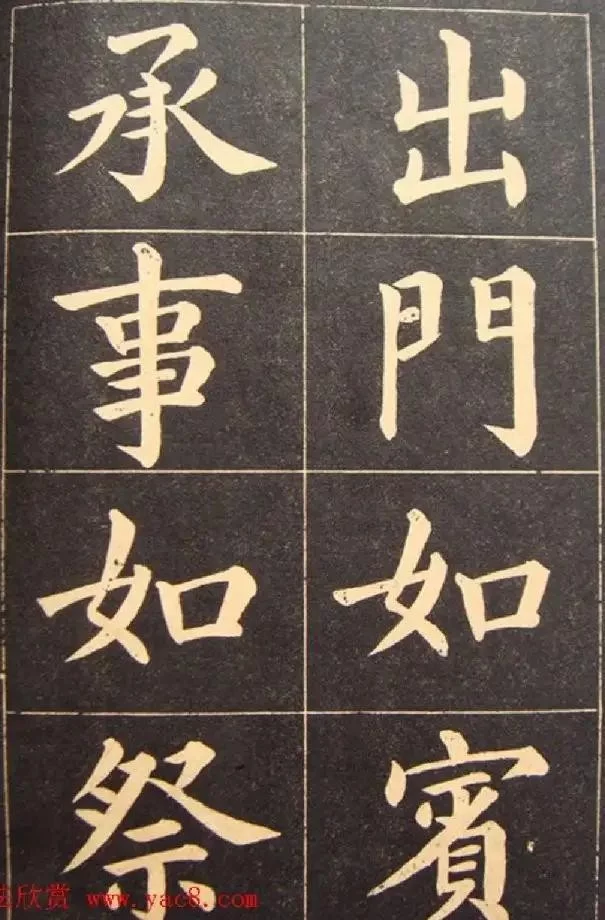 出門如賓
承事如祭
法欣赏 www.yac8.com